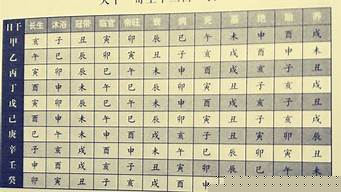 日干 长生 沐浴 冠带 临官 帝旺 衰 病 死 墓 绝 胎 养
甲 亥 子 丑 寅 卯 辰 巳 午 未 申 酉 戌
乙 午 巳 辰 卯 寅 丑 子 亥 戌 酉 申 未
丙 寅 卯 辰 巳 午 未 申 酉 戌 亥 子 丑
丁 酉 申 未 午 巳 辰 卯 寅 丑 子 亥 戌
戊 寅 卯 辰 巳 午 未 申 酉 戌 亥 子 丑
己 酉 申 未 午 巳 辰 卯 寅 丑 子 亥 戌
庚 巳 午 未 申 酉 戌 亥 子 丑 寅 卯 辰
辛 子 亥 戌 酉 申 未 午 巳 辰 卯 寅 丑
壬 申 酉 戌 亥 子 丑 寅 卯 辰 巳 午 未
癸 卯 寅 丑 子 亥 戌 酉 申